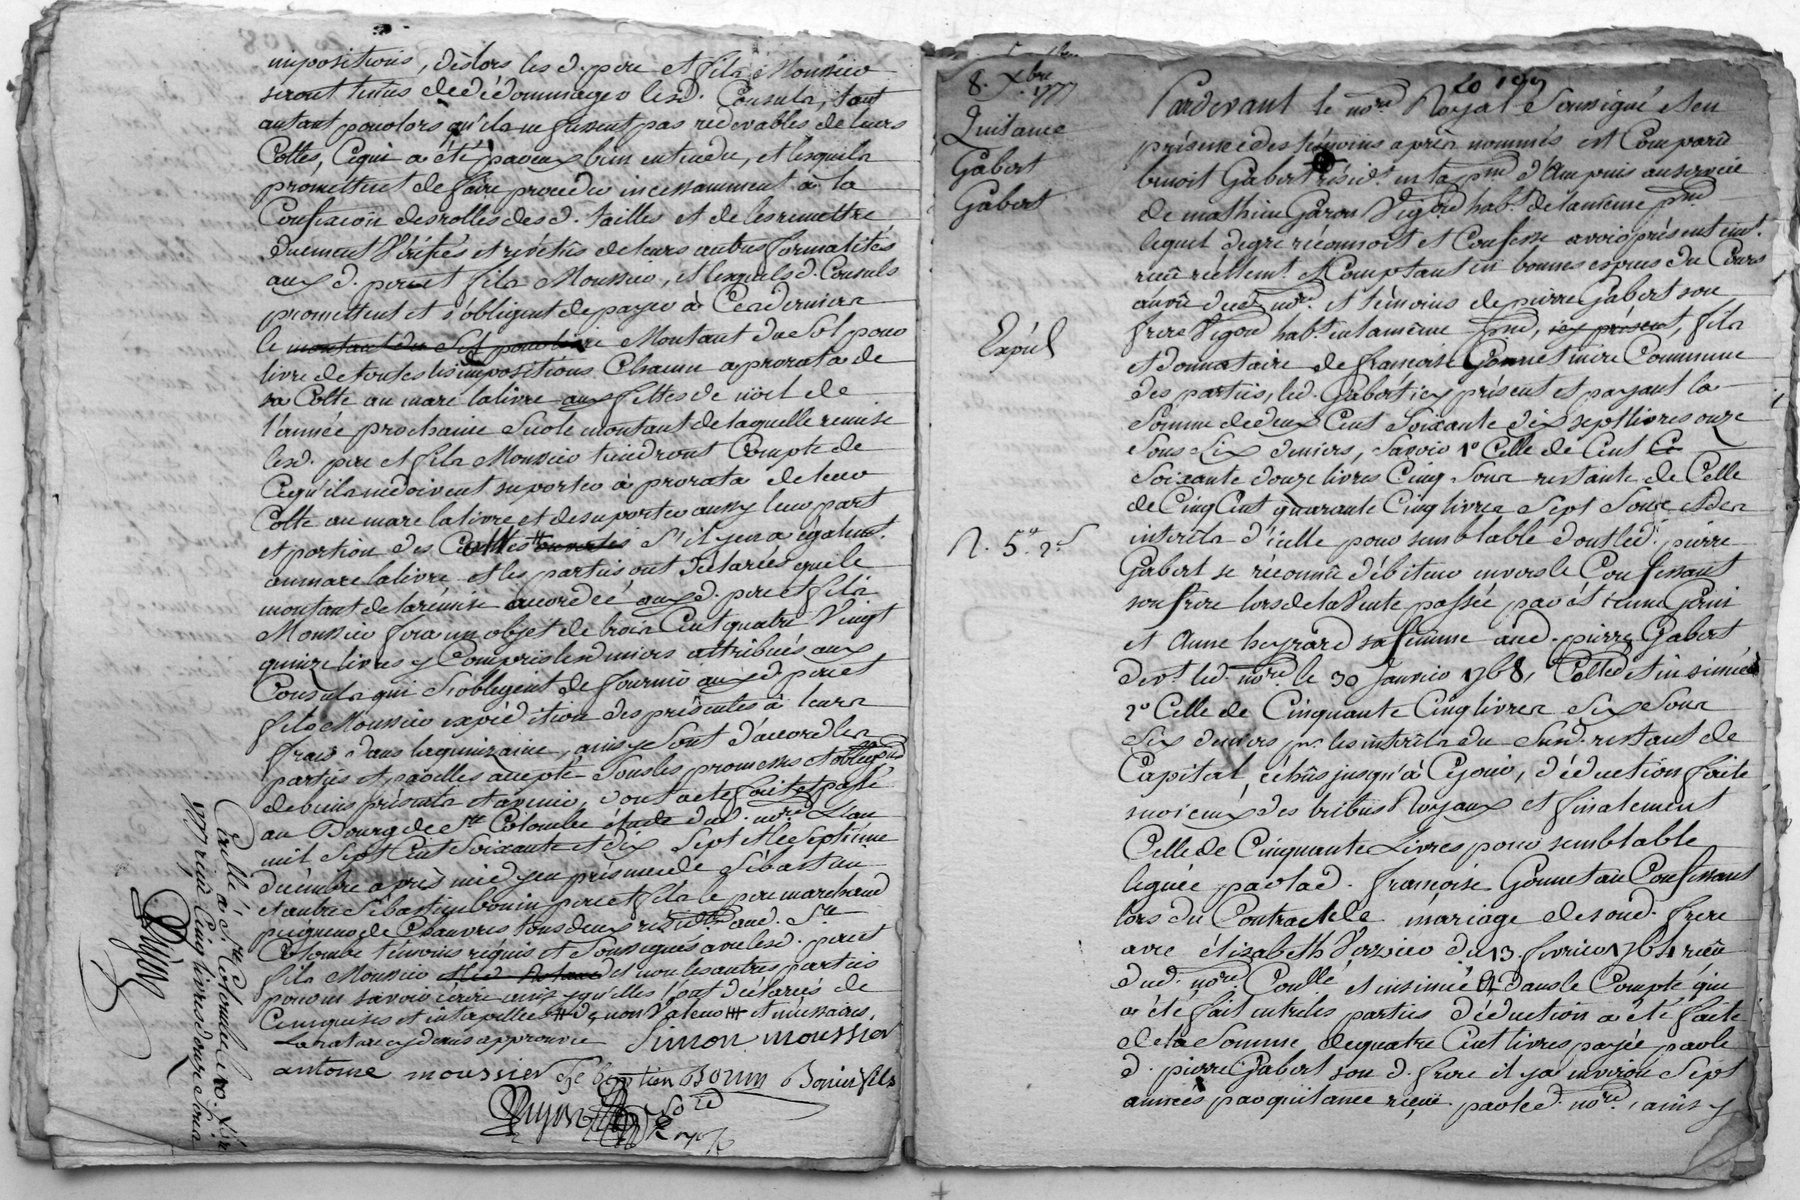 impositions, dèslors les d. pere et fils Moussier
seront tenus de dédommager lesd. Consuls, tout
autant pour lors qu'ils ne fussent pas redevables de leurs
Cottes, Ce qui a été par eux bien entendu, et lesquels
promettent de faire proceder incessamment à la
Confection des rolles des d. tailles et de les remettre
duement Vérifiés et revêtus de leurs autres formalités
aux d. pere et fils Moussier, et lesquels d. Consuls
promettent et s'obligent de payer à Ces derniers
le montant du Sol pour livre Montant du Sol pour
livre de toutes les impositions Chacun a prorata de
sa Cotte au marc la livre aux fettes de nöel de
l'année prochaine Sur le montant de laquelle remise
lesd. pere et fils Moussier tiendront Compte de
Ce qu'ils me doivent suporter à prorata de leur
Cotte au marc la livre et de suporter aussy leur part
et portion des S'il y en a égalemt.
au marc la livre et les parties ont déclarées que le
montant de la rémise accordée aux d. pere et fils
Moussier fera un objet de trois Cent quatre Vingt
quinze livres y Compris les deniers attribués aux
Consuls qui S'obligent de fournir aux d. pere et
fils Moussier expédition des présentes à leurs
frais dans la quinzaine, ainsy Sont d'accord les
parties et par elles accepté Sous les promesses et obligaõns
de biens présents et avenir, dont acte fait et passé
au Bourg de Ste Colombe étude dud. nore L'an
mil Sept Cent Soixante et dix Sept et le Septième
décembre après midy en présence de Sébastien
et autre Sébastien bonin pere et fils le pere marchand
peigneur de Chanvres tous deux residts aud. Ste
Colombe témoins réquis et Soussignés avec lesd. pere et
fils Moussier et led. Notaire et non les autres parties
pour ne savoir écrire ainsy qu'elles l'ont déclarées de
Ce enquises et interpellées de non Valeur et nécessaires,
La rature cy dessus approuvée Simon moussier
antoine moussier Sebastien Bonin Bonin fils
Dujon
Collé à Ste Colombe le 10. Xbre
1777 reçu Cinq livres douze Sous
Dujon
20 199
8. Xbre 1777
Quitance
Gabert
Gabert
Expié
Pardevant le nore Royal Soussigné et en
présence des témoins après nommés est Comparû
benoit Gabert résidt. en la psse d'Ampuis au service
de mathieu Garon Vigon habt. de la même psse
lequel de gré réconnoit et Confesse avoir présentemt.
reçu réellemt. et Comptant en bonnes espèces du Cours
au vû dud. nore. et témoins de pierre Gabert son
frere Vigon habt. en la même psse, icy présent, fils
et donnataire de françoise Gonnet mere Commune
des parties, led. Gabert icy présent et payant la
Somme de deux Cent Soixante dix sept livres onze
Sous Six deniers, Savoir 1o Celle de Cent
Soixante douze livres Cinq Sous restante de Celle
de Cinq Cent quarante Cinq livres Sept Sous et des
interêts d'icelle pour semblable dont led. pierre
Gabert se reconnû débiteur envers le Confessant
son frere lors de la Vente passée par et
et Anne heyrard sa femme aud. pierre Gabert
devt. led. nore le 30 Janvier 1768, Collée et insinuée
2o Celle de Cinquante Cinq livres Six Sous
Six deniers pr. les interêts du Susd. restant de
Capital, échûs jusqu'à Ce jour, déduction faite
des tribus Royaux et finalement
Celle de Cinquante Livres pour semblable
leguée par lad. françoise Gonnet au Confessant
lors du Contract de mariage de sond. frere
avec élizabeth Verzier du 13 fevrier 1764 reçu
dud. nore. Coullé et insinué dans le Compte qui
a été fait entre les parties déduction a été faite
de la Somme de quatre Cent livres payée par le
d. pierre Gabert son d. frere il y a environ Sept
années par quitance reçue par led. nore., ainsy